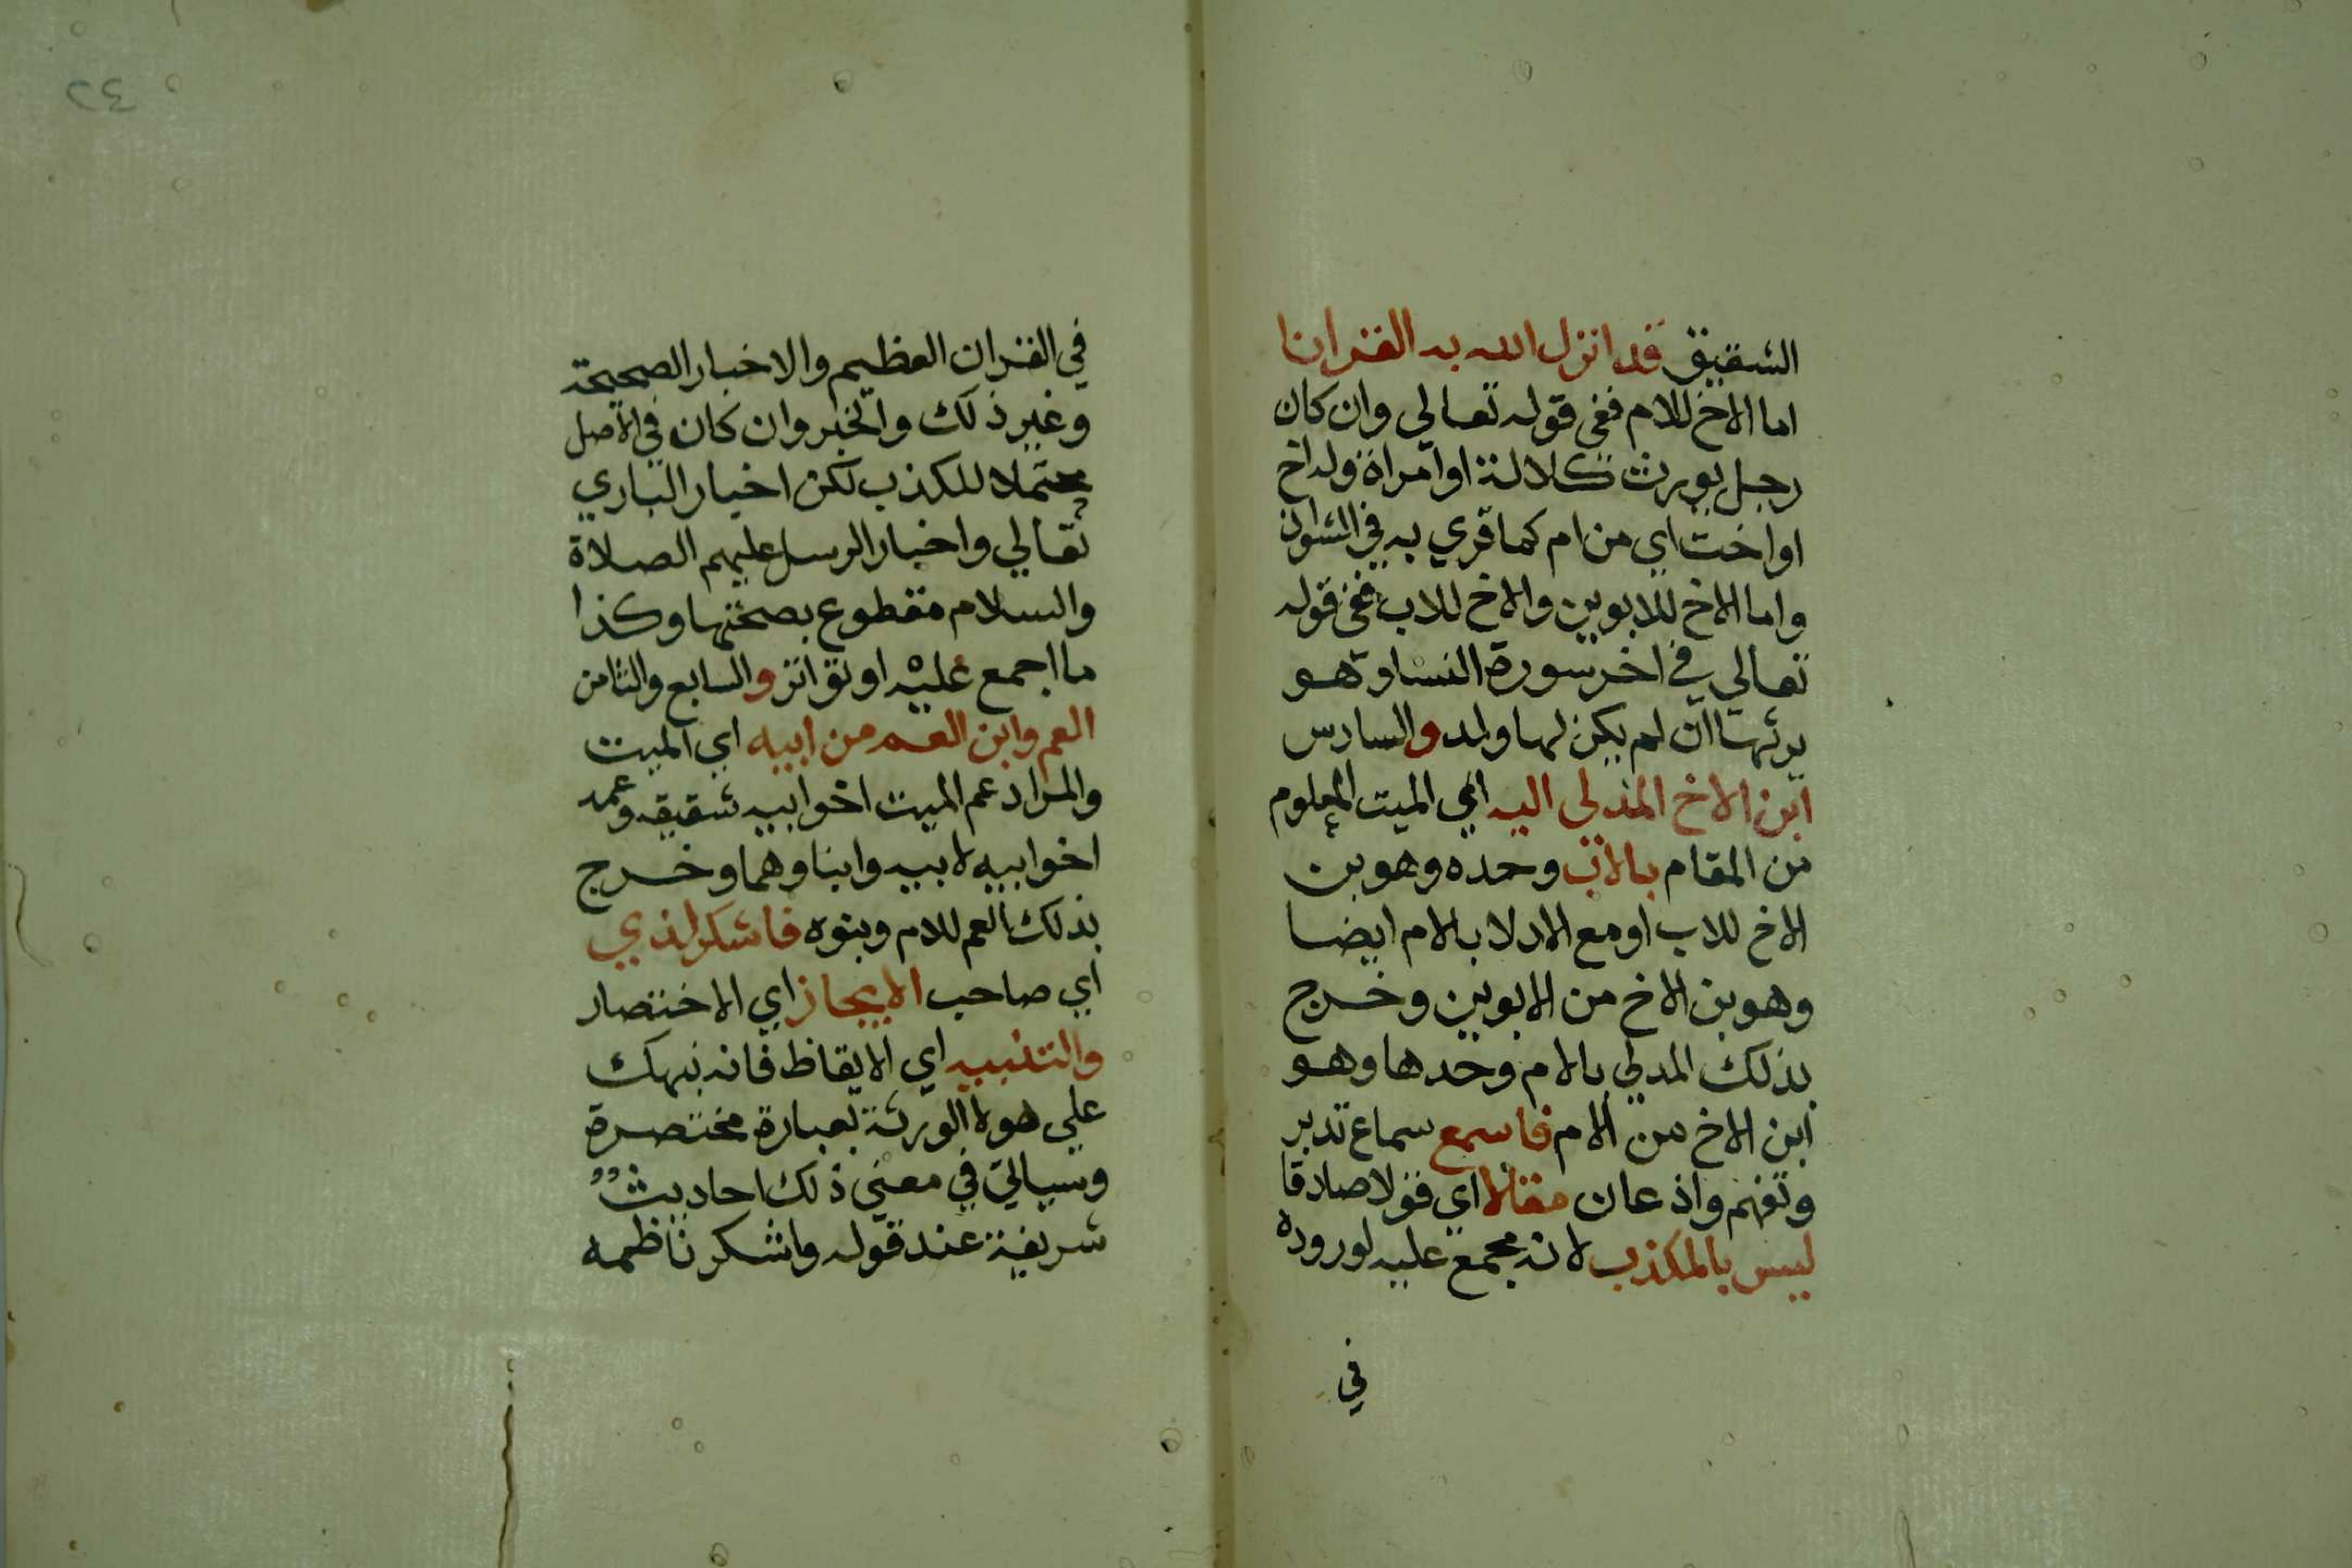 الشقيق قد انزل الله به القرانا
اما الاخ للام ففي قوله تعالي وان كان
رجل يورث كلالة او امراة وله اخ
او اخت اي من ام كما قري به في الشواذ
واما الاخ للابوين والاخ للاب ففي قوله
تعالي في اخر سورة النسا وهو
يرثها ان لم يكن لها ولد والسادس
ابن الاخ المدلي اليه اي الميت المعلوم
من المقام بالاب وحده وهو بن
الاخ للاب او مع الادلا بالام ايضا
وهو بن الاخ من الابوين وخرج
بذلك المدلي بالام وحدها وهو
ابن الاخ من الام فاسمع سماع تدبر
وتفهم واذعان مقالا اي قولا صادقا
ليس بالمكذب لانه مجمع عليه لوروده
في
٤٢
في القران العظيم والاخبار الصحيحة
وغير ذلك والخبر وان كان في الاصل
محتملا للكذب لكن اخبار الباري
تعالي واخبار الرسل عليهم الصلاة
والسلام مقطوع بصحتها وكذا
ما اجمع عليه او تواتر والسابع والثامن
العم وابن العم من ابيه اي الميت
والمراد عم الميت اخو ابيه شقيقه وعمه
اخو ابيه لابيه وابناوهما وخرج
بذلك العم للام وبنوه فاشكر لذي
اي صاحب الايجاز اي الاختصار
والتنبيه اي الايقاظ فانه نبهك
علي هولا الورثة بعبارة مختصرة
وسياتي في معني ذلك احاديث
شريفة عند قوله واشكر ناظمه